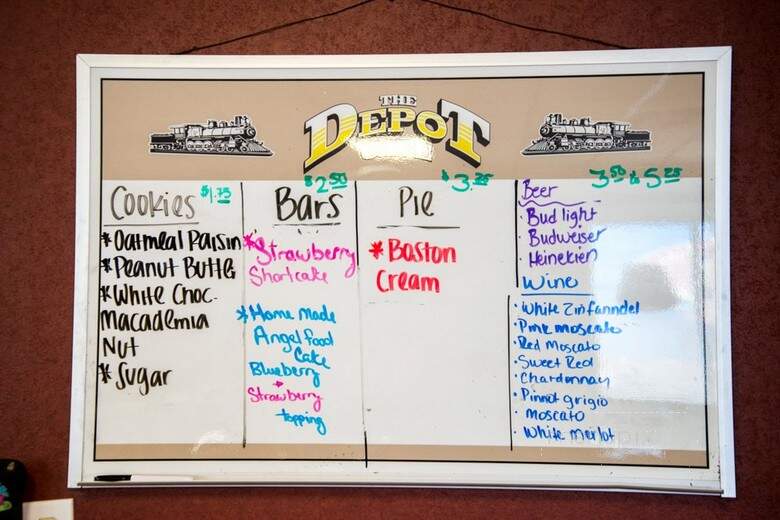 THE
DEPOT
Cookies $1.75
* Oatmeal Raisin
* Peanut Butter
* White Choc.
Macademia
Nut
* Sugar
$2.50
Bars
* Strawberry
Shortcake
* Home Made
Angel food
Cake
Blueberry
Strawberry
topping
$3.25
Pie
* Boston
Cream
3.50 & 5.25
Beer
· Bud light
· Budweiser
· Heinekien
Wine
· White Zinfanndel
· Pink moscato
· Red Moscato
· Sweet Red
· Chardonnay
· Pinnot grigio
· moscato
· White merlot